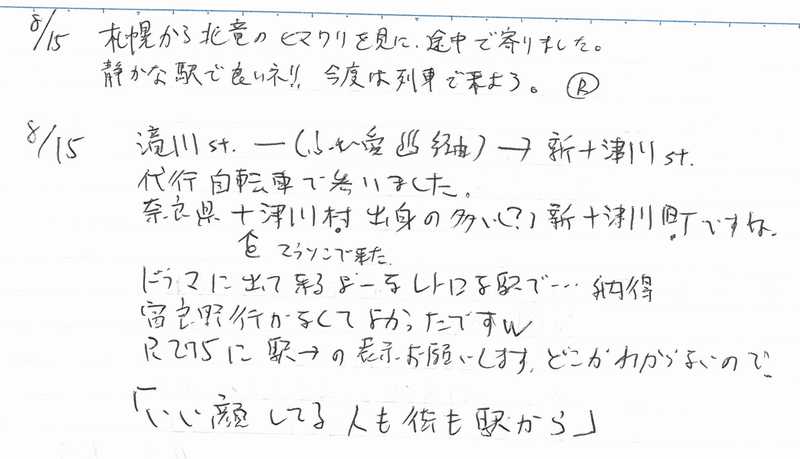 8/15 札幌から北竜のヒマワリを見に、途中で寄りました。
静かな駅で良いネ!! 今度は列車で来よう。 Ⓡ
8/15 滝川st. ー(ふれ愛 経由)→ 新十津川st.
代行 自転車で参いました。
奈良県 十津川村 出身の多い(?)新十津川町ですね。
↑ で来た
ドラマに出て来るよーなレトロな駅で… 納得
富良野行かなくてよかったですw
R275に 駅→の表示お願いします。どこかわからないので
「いい顔してる 人も街も駅から」